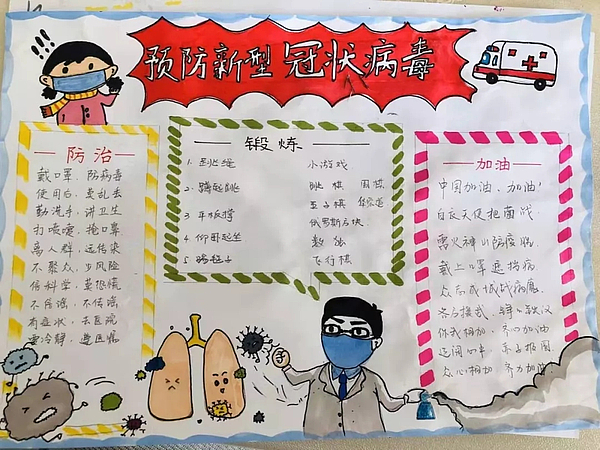 预防新型冠状病毒
防治
戴口罩, 防病毒
使用后, 莫乱丢
勤洗手, 讲卫生
打喷嚏, 捂口鼻
离人群, 远传染
不聚众, 少风险
信科学, 莫恐慌
不信谣, 不传谣
有症状, 去医院
要冷静, 遵医嘱
锻炼
1. 跳绳 小游戏
2. 蹲起跳 跳棋 围棋
3. 平板撑 五子棋
4. 仰卧起坐 俄罗斯方块
5. 踢毽子 飞行棋
加油
中国加油, 加油!
白衣天使把菌战
雷火神山防疫
戴上口罩
众志成城战病
你我相加, 齐心加油
众心相加 齐力加油